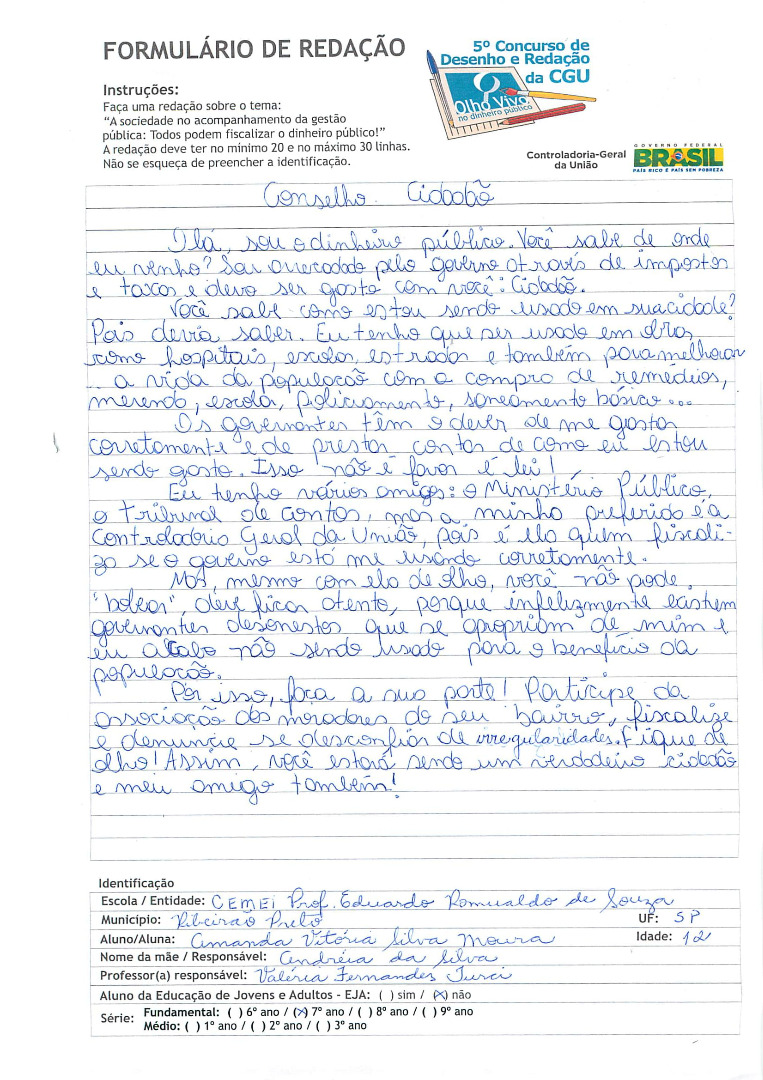 FORMULÁRIO DE REDAÇÃO
5º Concurso de
Desenho e Redação
da CGU
Olho Vivo
no dinheiro público
Instruções:
Faça uma redação sobre o tema:
"A sociedade no acompanhamento da gestão
pública: Todos podem fiscalizar o dinheiro público!"
A redação deve ter no mínimo 20 e no máximo 30 linhas.
Não se esqueça de preencher a identificação.
Controladoria-Geral
da União
GOVERNO FEDERAL
BRASIL
PAÍS RICO É PAÍS SEM POBREZA
Conselho Cidadão
Olá, sou o dinheiro público. Você sabe de onde
eu venho? Sou arrecadado pelo governo através de impostos
e taxas e devo ser gasto com você: Cidadão.
Você sabe como estou sendo usado em sua cidade?
Pois devia saber. Eu tenho que ser usado em obras
como hospitais, escolas, estradas e também para melhorar
a vida da população com a compra de remédios,
merenda, escola, policiamento, saneamento básico...
Os governantes têm o dever de me gastar
corretamente e de prestar contas de como eu estou
sendo gasto. Isso não é favor é lei!
Eu tenho vários amigos: o Ministério Público,
o tribunal de contas, mas a minha preferida é a
Controladoria Geral da União, pois é ela quem fiscali-
za se o governo está me usando corretamente.
Mas, mesmo com ela de olho, você não pode
"bobear", deve ficar atento, porque infelizmente existem
governantes desonestos que se apropriam de mim e
eu acabo não sendo usado para o benefício da
população.
Por isso, faça a sua parte! Participe da
associação dos moradores do seu bairro, fiscalize
e denuncie se desconfiar de irregularidades. Fique de
olho! Assim, você estará sendo um verdadeiro cidadão
e meu amigo também!
Identificação
Escola / Entidade: CEMEI Prof. Eduardo Romualdo de Souza
Município: Ribeirão Preto UF: SP
Aluno/Aluna: Amanda Vitória Silva Moura Idade: 12
Nome da mãe / Responsável: Andréia da Silva
Professor(a) responsável: Valéria Fernandes Turci
Aluno da Educação de Jovens e Adultos - EJA: ( ) sim / (X) não
Série: Fundamental: ( ) 6º ano / (X) 7º ano / ( ) 8º ano / ( ) 9º ano
Médio: ( ) 1º ano / ( ) 2º ano / ( ) 3º ano